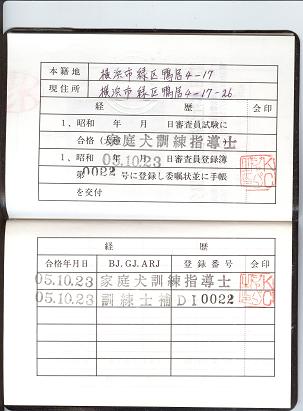 本籍地 横浜市緑区鴨居4-17
現住所 横浜市緑区鴨居4-17-26
経 歴 会印
1、昭和 年 月 日審査員試験に
合格(大 家庭犬訓練指導士
05.10.23
1、昭和 年 月 日審査員登録簿
第0022号に登録し委嘱状並に手帳
を交付
経 歴
合格年月日 BJ.GJ.ARJ 登録番号 会印
05.10.23 家庭犬訓練指導士
05.10.23 訓練士補 DI0022